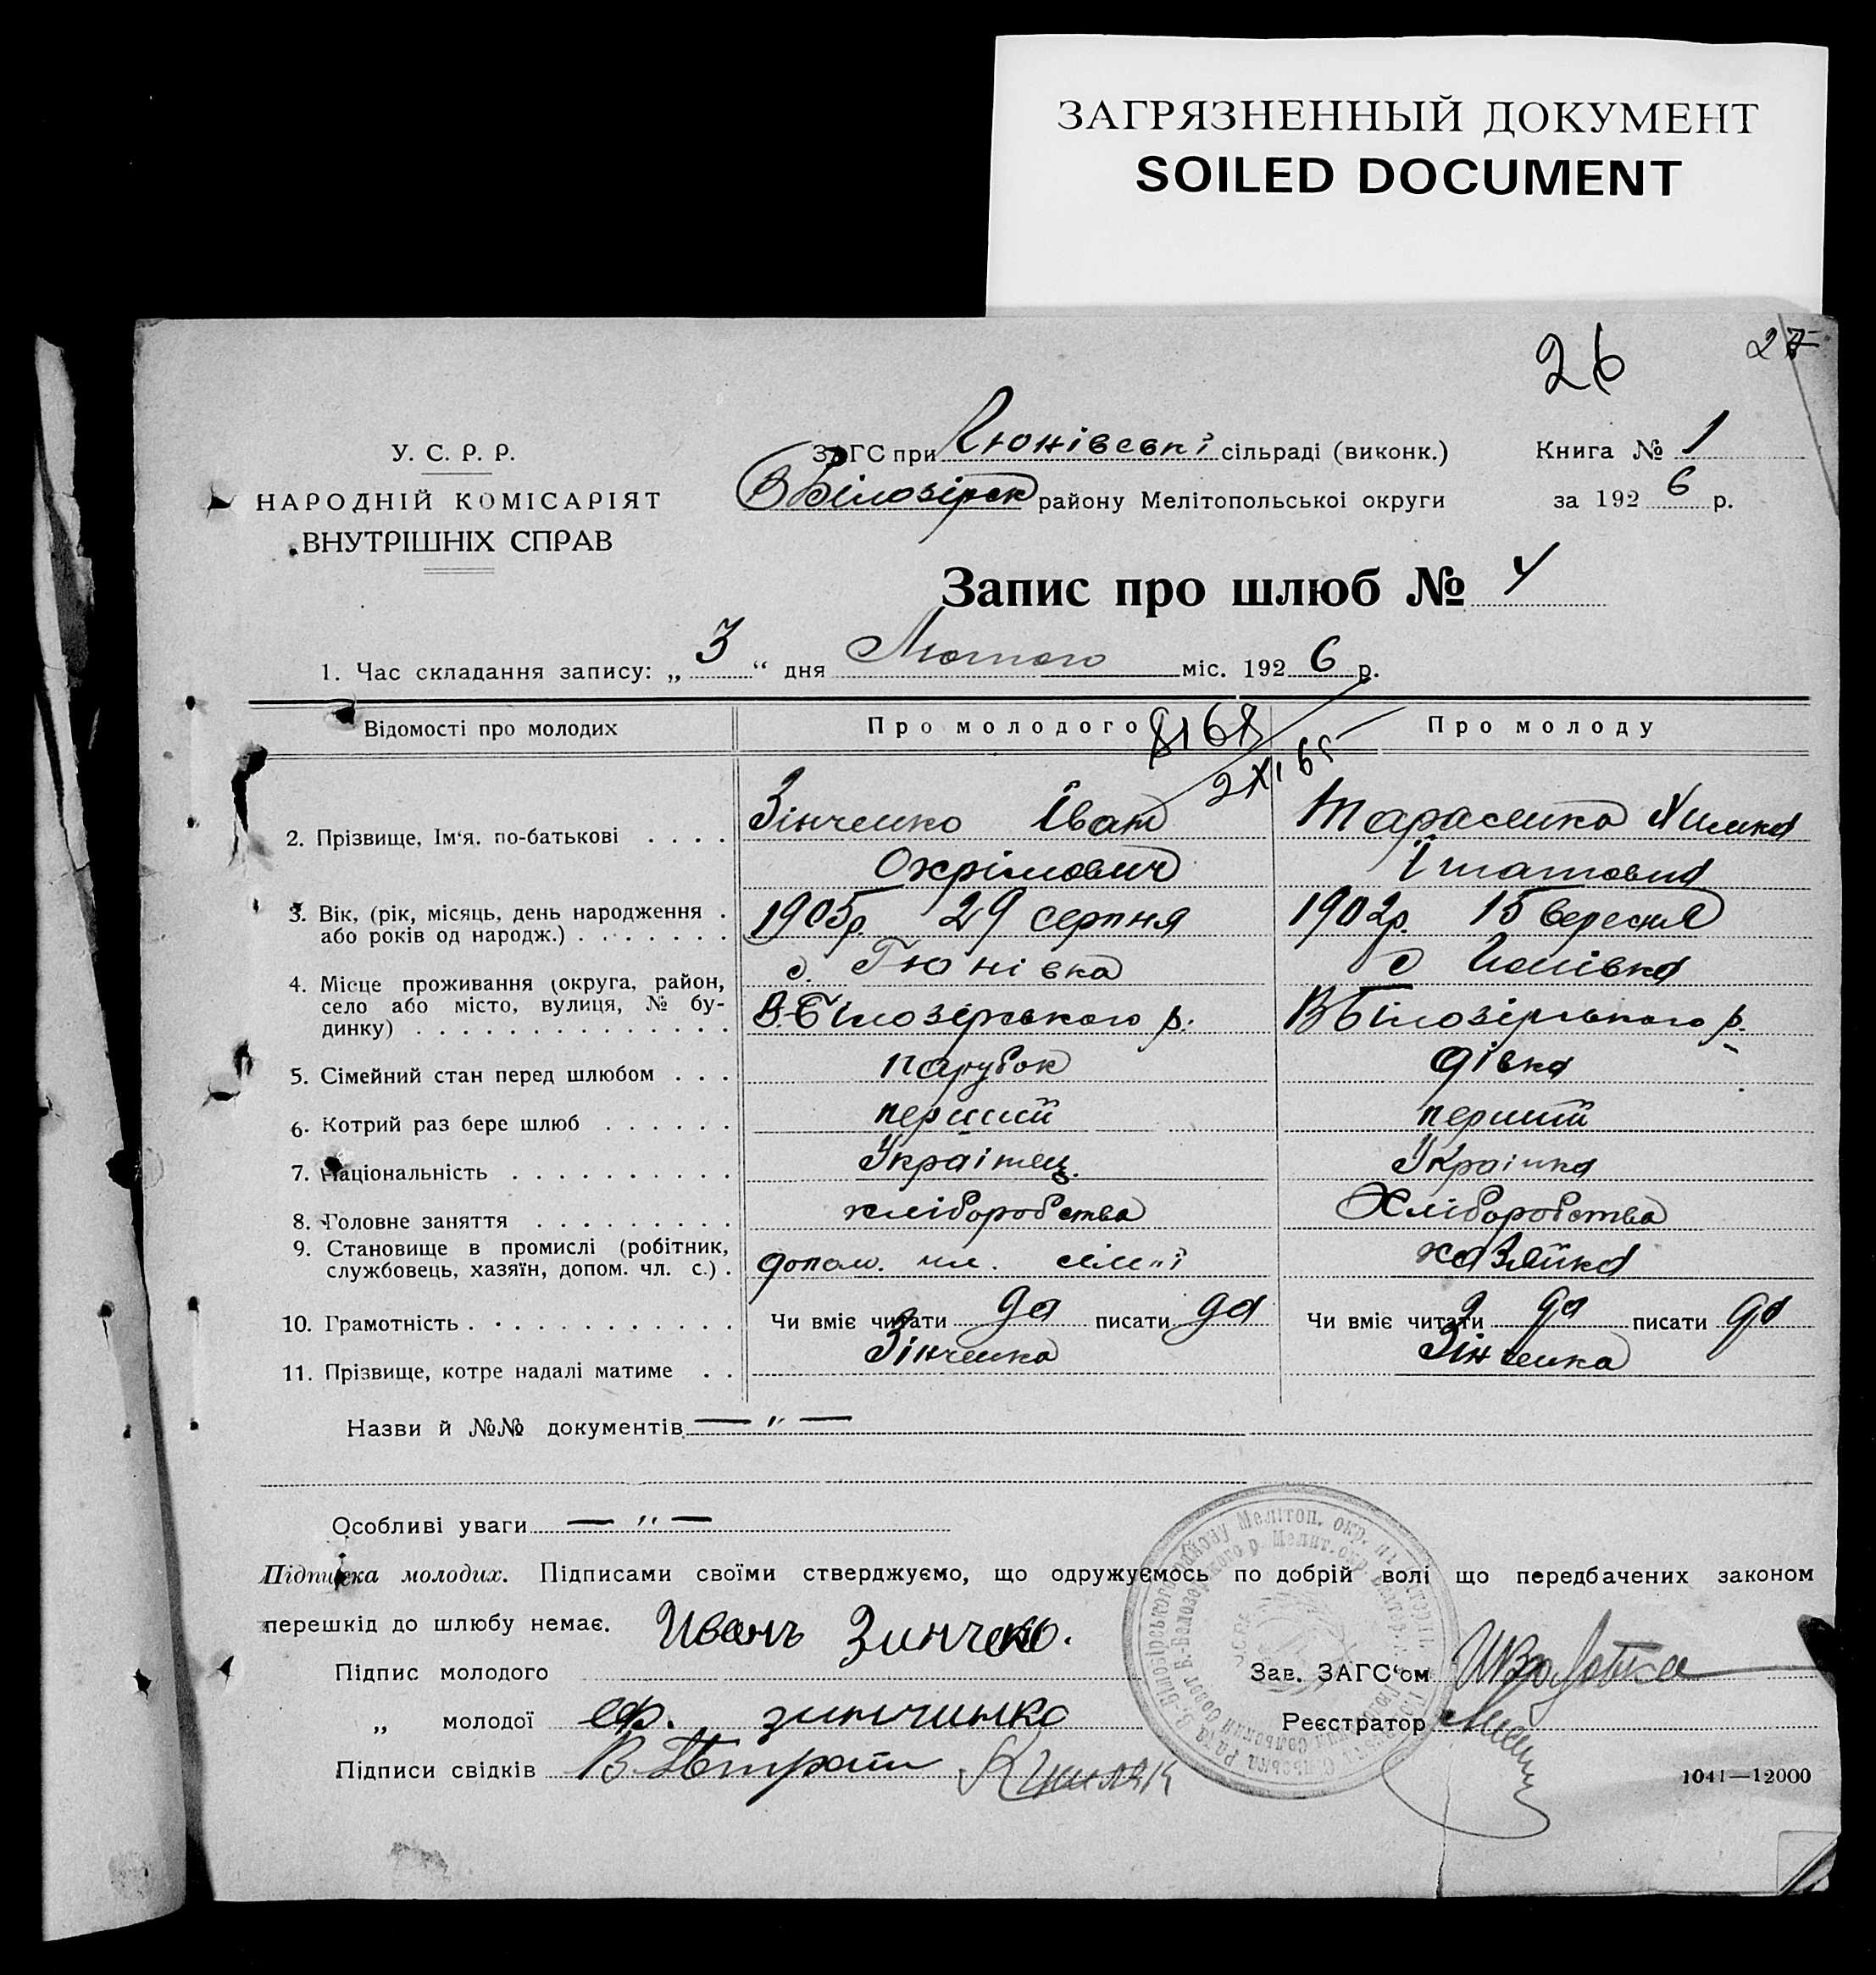 ЗАГРЯЗНЕННЫЙ ДОКУМЕНТ
SOILED DOCUMENT
26 27
У. С. Р. Р.
НАРОДНІЙ КОМІСАРІЯТ
ВНУТРІШНІХ СПРАВ
ЗАГС при Гюнівські сільраді (виконк.)
В Білозірск району Мелітопольської округи
Книга № 1
за 1926 р.
Запис про шлюб № 4
1. Час складання запису: „ 3 “ дня Лютого міс. 1926 р.
Відомості про молодих Про молодого Про молоду
2 XI 65
2. Прізвище, Ім‘я, по-батькові . . . . Зінченко Іван Охрімович Тарасенко
3. Вік, (рік, місяць, день народження . 1905р. 29 серпня 1902р. 15 вересня
або років од народж.) . . . . . . .
4. Місце проживання (округа, район, с. Гюнівка с
село або місто, вулиця, № бу- В-Білозірського р. В Білозірського р.
динку) . . . . . . . . . . . . . .
5. Сімейний стан перед шлюбом . . . парубок дівка
6. Котрий раз бере шлюб . . . . . . перший перший
7. Національність . . . . . . . . . . Українец. Українка
8. Головне заняття . . . . . . . . . хліборобства Хліборобства
9. Становище в промислі (робітник, допом. чл. сімії хазяйка
службовець, хазяїн, допом. чл. с.) .
10. Грамотність . . . . . . . . . . . . Чи вміє читати да писати да Чи вміє читати да писати да
11. Прізвище, котре надалі матиме . . Зінченко Зінченко
Назви й №№ документів — „ —
Особливі уваги — „ —
Підписка молодих. Підписами своїми стверджуємо, що одружуємось по добрій волі що передбачених законом
перешкід до шлюбу немає. Иванъ Зинченко.
Підпис молодого Зав. ЗАГС‘ом
„ молодої еф. зинчинко Реєстратор
Підписи свідків
1041—12000